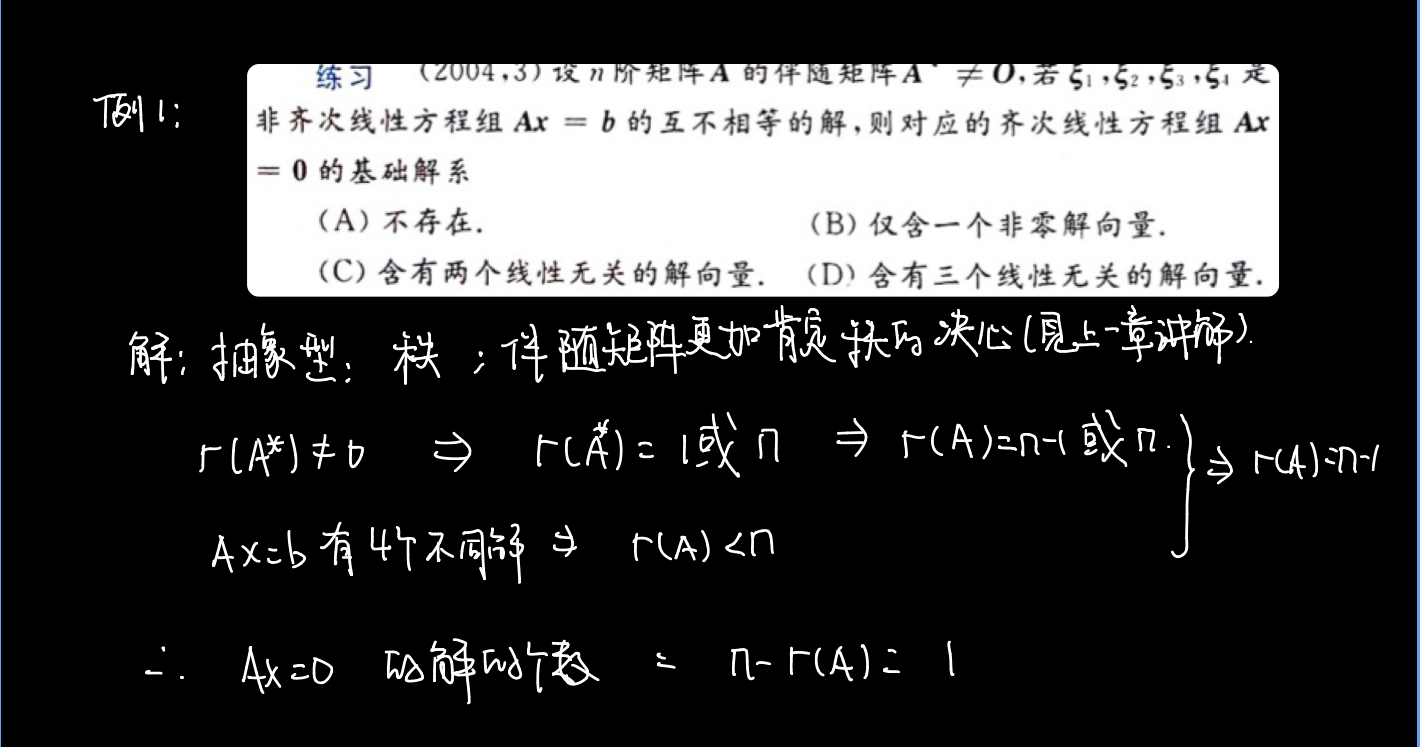 例1:
练习 (2004,3) 设 n 阶矩阵 A 的伴随矩阵 A* ≠ O,若 ξ₁,ξ₂,ξ₃,ξ₄ 是
非齐次线性方程组 Ax = b 的互不相等的解,则对应的齐次线性方程组 Ax
= 0 的基础解系
(A) 不存在. (B) 仅含一个非零解向量.
(C) 含有两个线性无关的解向量. (D) 含有三个线性无关的解向量.
解: 抽象型: 秩 ; 伴随矩阵更加肯定秩的决心(见上一章讲解).
r(A*)≠0 ⇒ r(A*)= 1或 n ⇒ r(A)=n-1 或 n. } ⇒ r(A)=n-1
Ax=b 有 4个不同解 ⇒ r(A)<n
∴ Ax=0 的解的个数 = n-r(A)= 1